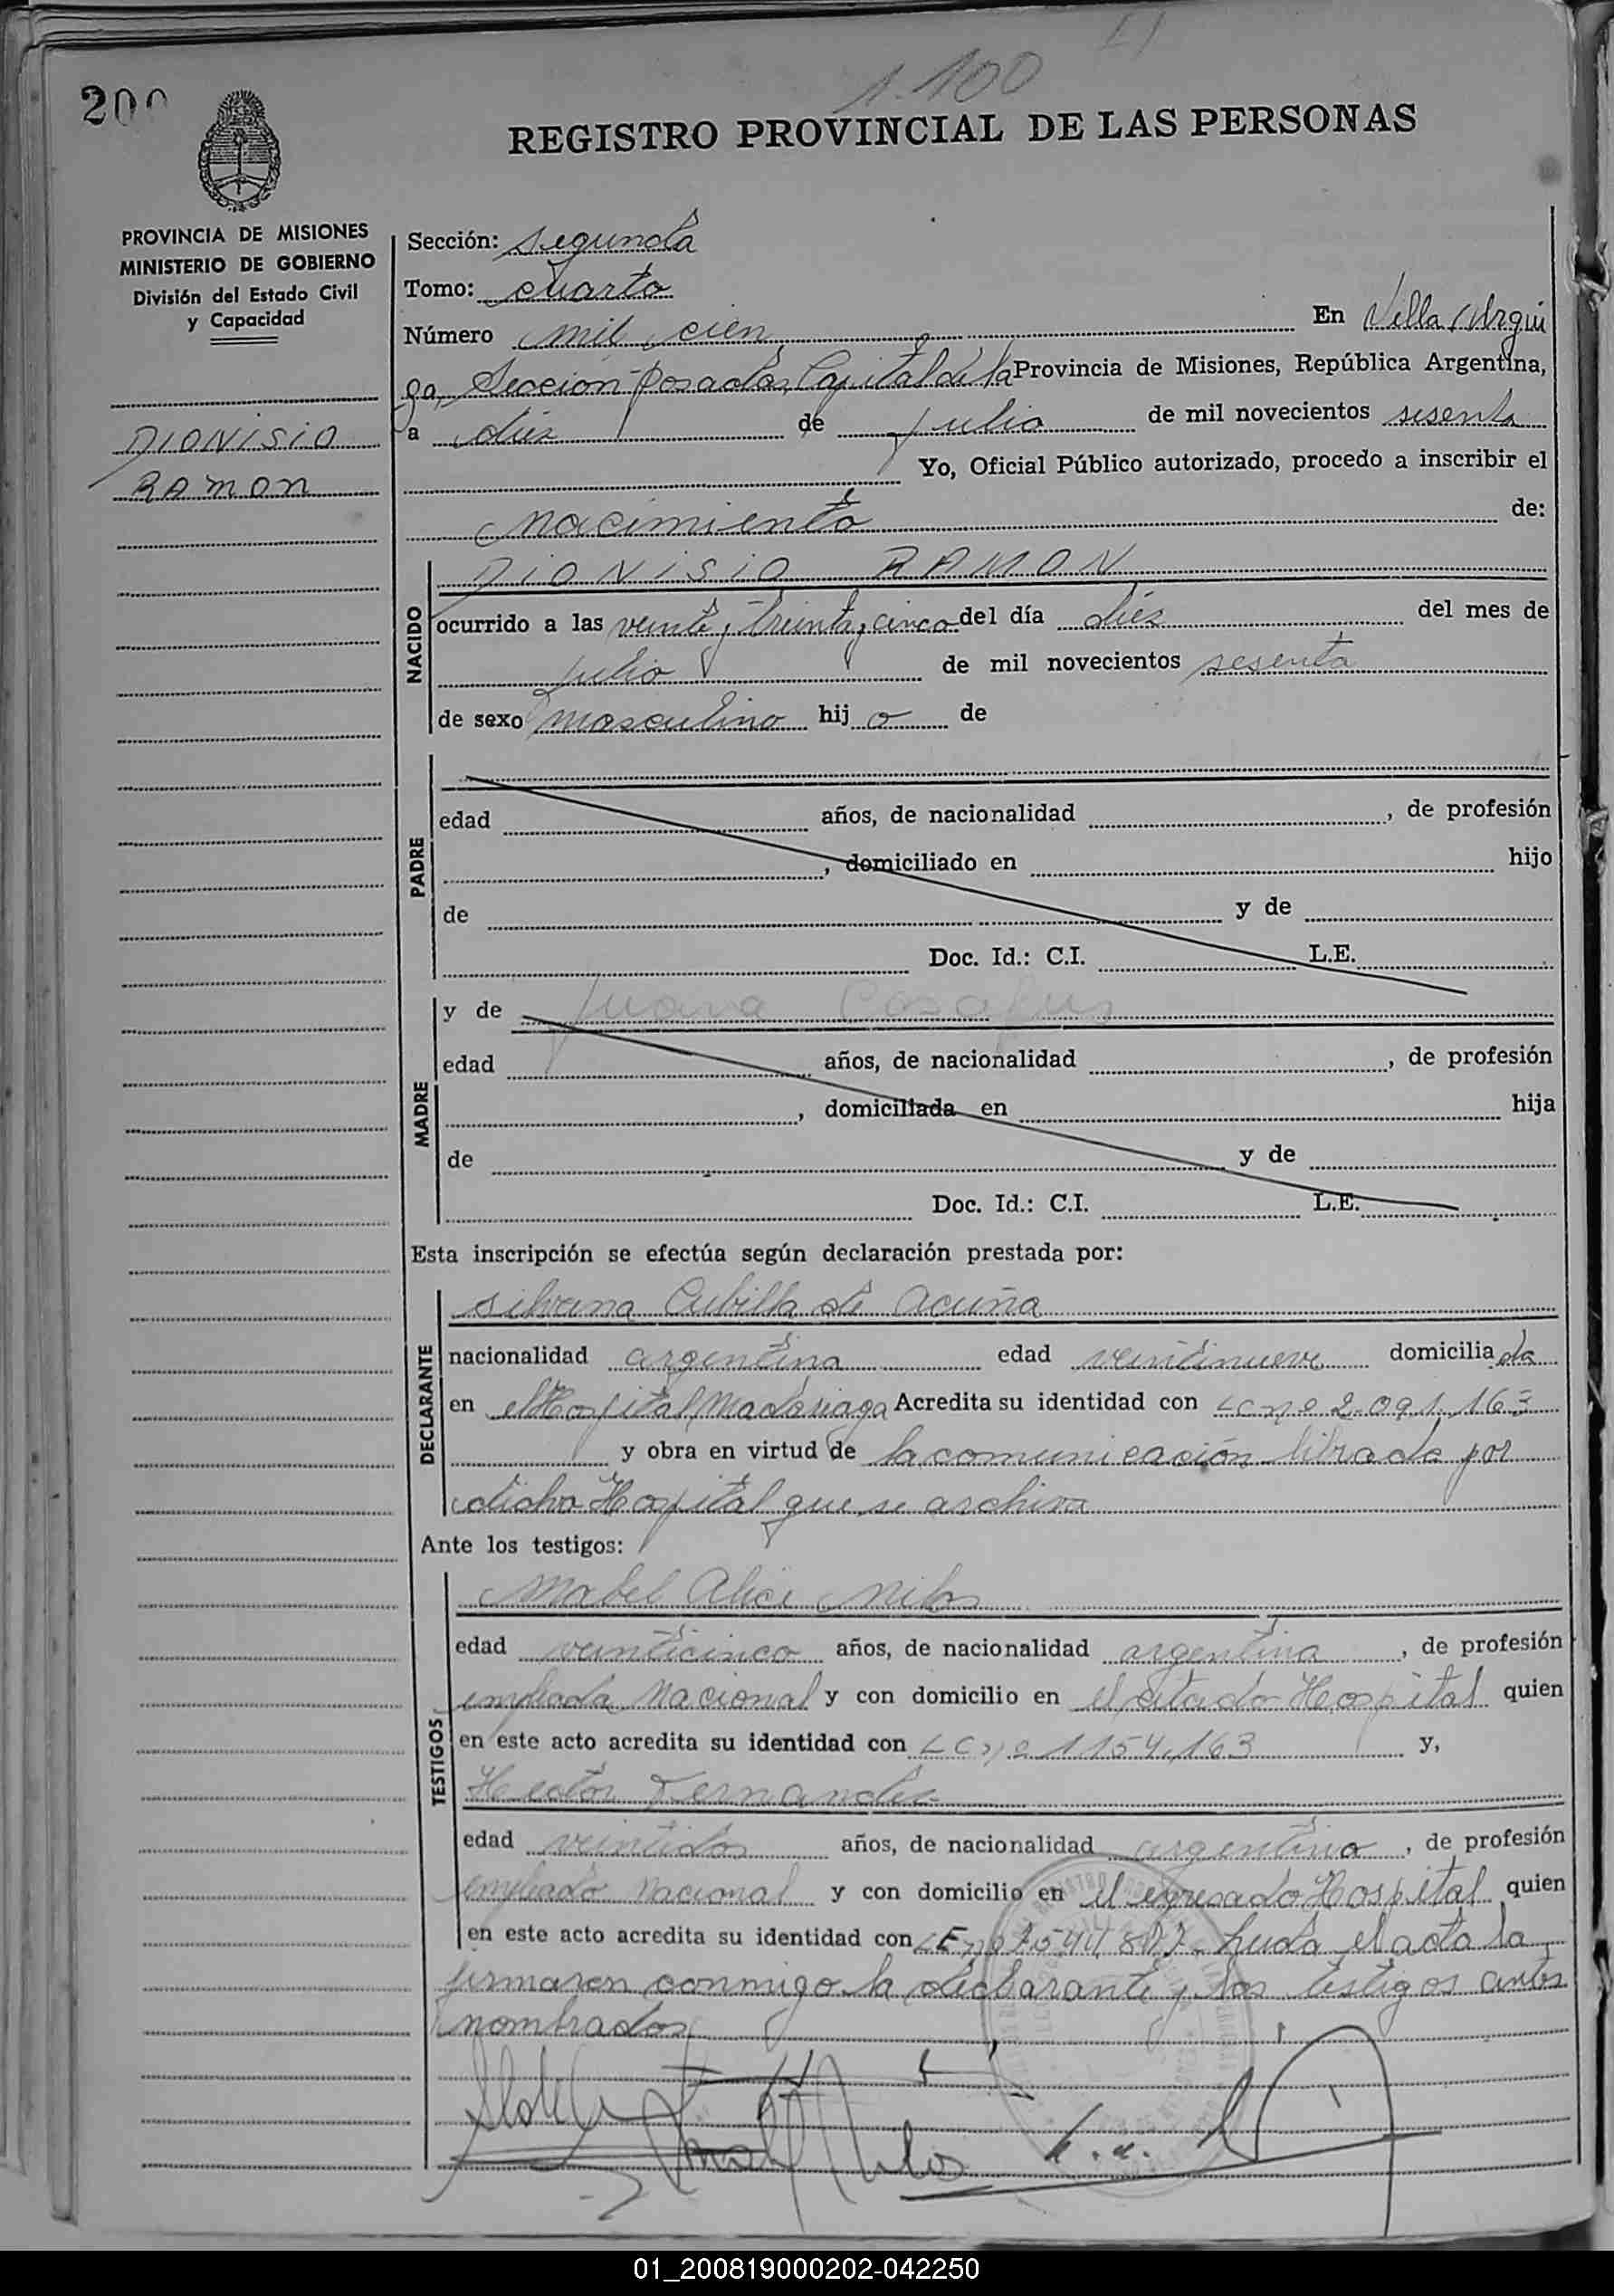 1.100
200
REGISTRO PROVINCIAL DE LAS PERSONAS
PROVINCIA DE MISIONES
MINISTERIO DE GOBIERNO
División del Estado Civil
y Capacidad
DIONISIO
RAMON
Sección: segunda
Tomo: cuarto
Número mil cien En Villa Urqui
ga, Seccion Posadas, Capital de la Provincia de Misiones, República Argentina,
a diez de julio de mil novecientos sesenta
Yo, Oficial Público autorizado, procedo a inscribir el
nacimiento de:
NACIDO
DIONISIO RAMON
ocurrido a las veinte y treinta y cinco del día diez del mes de
julio de mil novecientos sesenta
de sexo masculino hij o de
PADRE
edad años, de nacionalidad , de profesión
, domiciliado en hijo
de y de
Doc. Id.: C.I. L.E.
MADRE
y de Juana
edad años, de nacionalidad , de profesión
, domiciliada en hija
de y de
Doc. Id.: C.I. L.E.
Esta inscripción se efectúa según declaración prestada por:
DECLARANTE
Silvana Cubilla de Acuña
nacionalidad argentina edad veintinueve domicilia da
en el Hospital Madariaga Acredita su identidad con LC nº 2.091.163
y obra en virtud de la comunicación librada por
dicho Hospital que se archiva
Ante los testigos:
TESTIGOS
Mabel Alice Milos
edad veinticinco años, de nacionalidad argentina , de profesión
empleada Nacional y con domicilio en el citado Hospital quien
en este acto acredita su identidad con LC nº 1154.163 y,
Hector Fernandez
edad veintidos años, de nacionalidad argentino , de profesión
empleado nacional y con domicilio en el expresado Hospital quien
en este acto acredita su identidad con LE nº leida el acta la
firmaron conmigo la declarante y los testigos antes
nombrados
01_200819000202-042250